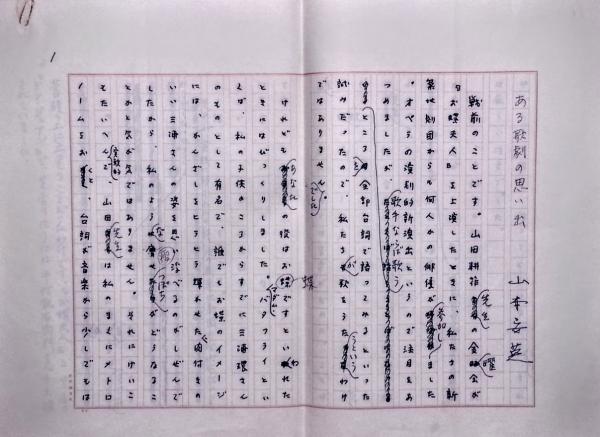 ある歌劇の思い出　山本安英
戦前のことです。山田耕筰先生の金曜会が
『お蝶夫人』を上演したときに、私たちの新
築地劇団からも何人かの俳優が参加しました
。オペラの演劇的新演出というので注目をあ
つめましたが、歌手ならば歌う
ところを全部台詞で語ってみるといった
試みだったので、私たちが歌をうたうというわけ
ではありませんでした。
けれどもあなたの役はお蝶ですといわれた
ときにはびっくりしました。マダム・バタフライとい
えば、私の子供のころからすでに三浦環さん
のものとして有名で、誰でもお蝶のイメージ
には、かんざしを わせた肉付きの
いい三浦さんの姿を思い浮べるのがしぜんで
したから、私のような っぽちがどうなるこ
とかと気が気ではありません。それにけいこ
たいへんで、山田先生は私のまえにメトロ
ノームをおくと、台詞が音楽から少しでもは
1